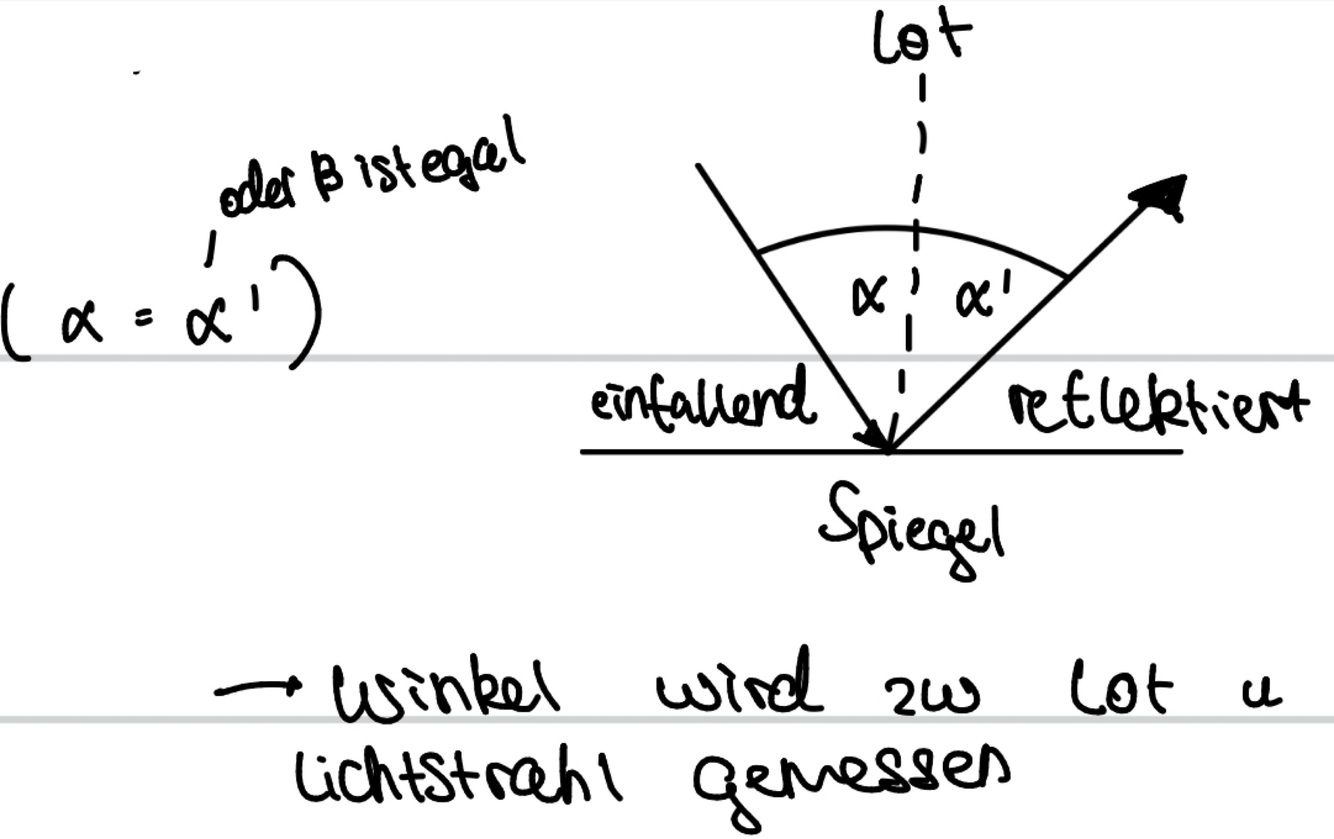 Lot
oder β ist egal
(α = α')
α α'
einfallend reflektiert
Spiegel
→ Winkel wird zw Lot u
Lichtstrahl gemessen